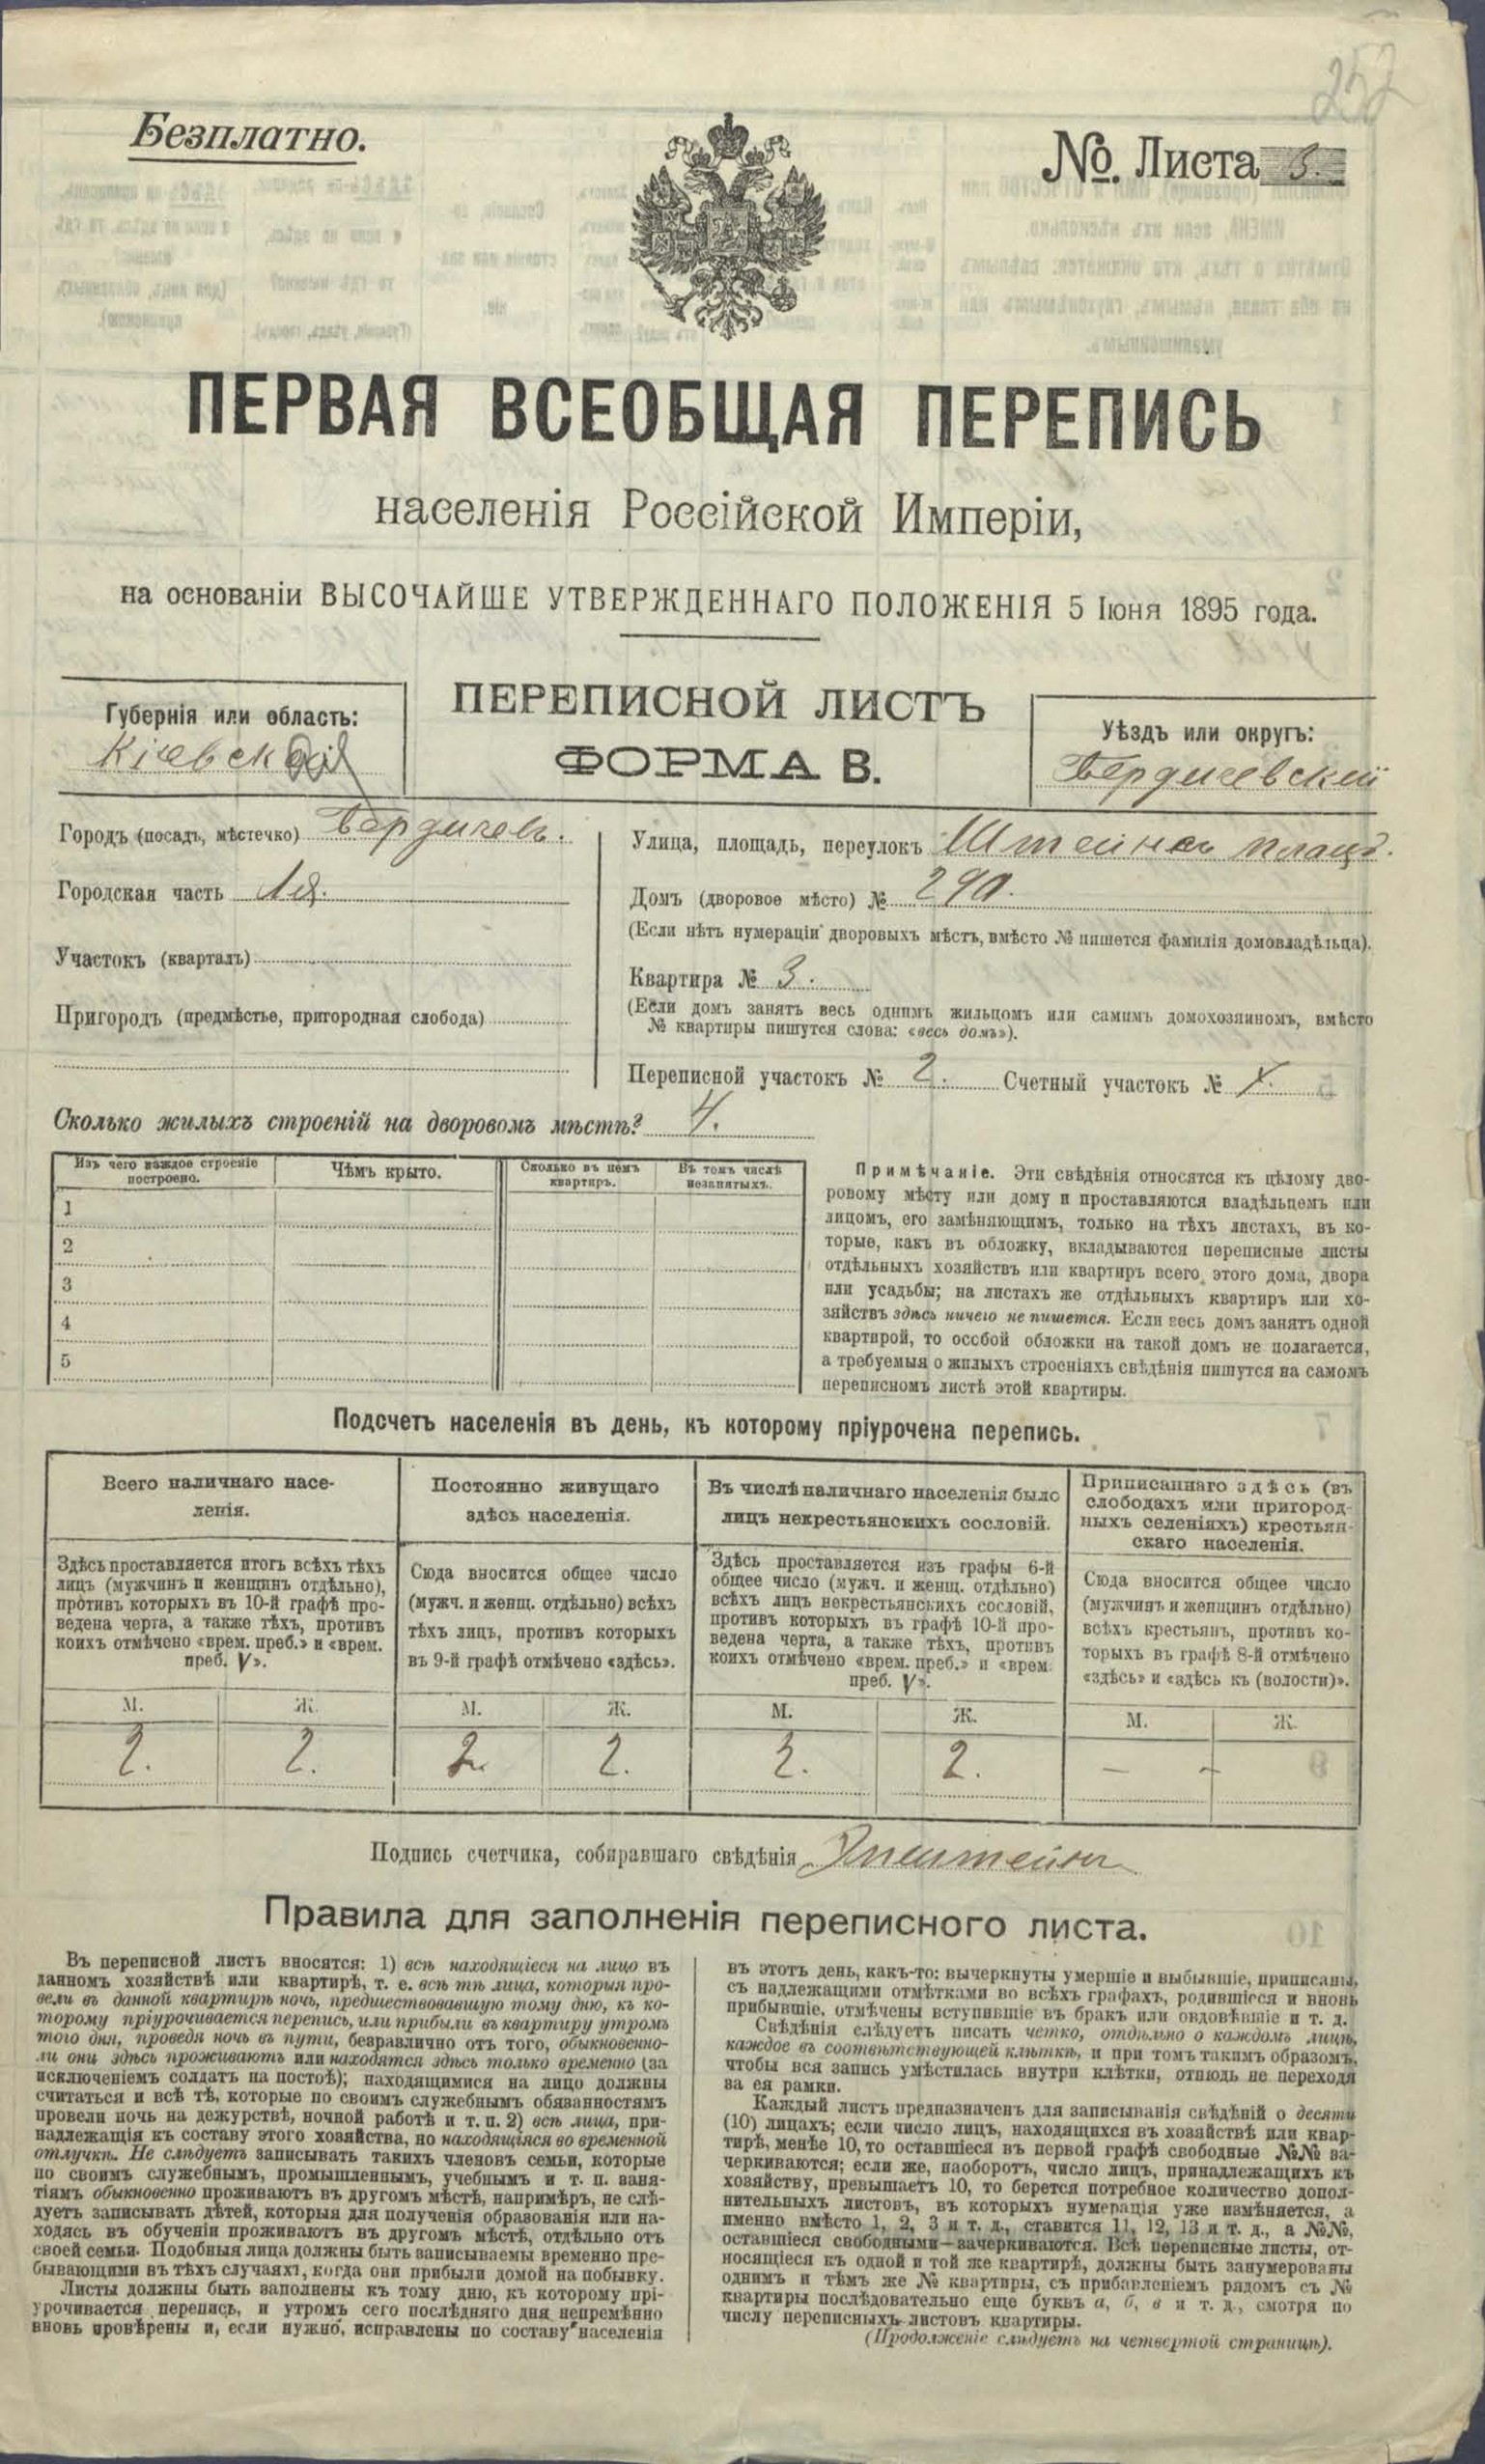 252
Безплатно.
№. Листа 3.
ПЕРВАЯ ВСЕОБЩАЯ ПЕРЕПИСЬ
населенія Россійской Имперіи,
на основаніи ВЫСОЧАЙШЕ УТВЕРЖДЕННАГО ПОЛОЖЕНІЯ 5 Іюня 1895 года.
Губернія или область:
Кіевская
ПЕРЕПИСНОЙ ЛИСТЪ
ФОРМА В.
Уѣздъ или округъ:
Бердичевскій
Городъ (посадъ, мѣстечко) Бердичевъ.
Городская часть 1я.
Участокъ (кварталъ)
Пригородъ (предмѣстье, пригородная слобода)
Улица, площадь, переулокъ
Домъ (дворовое мѣсто) № 290.
(Если нѣтъ нумераціи дворовыхъ мѣстъ, вмѣсто № пишется фамилія домовладѣльца).
Квартира № 3.
(Если домъ занятъ весь однимъ жильцомъ или самимъ домохозяиномъ, вмѣсто
№ квартиры пишутся слова: «весь домъ»).
Переписной участокъ № 2. Счетный участокъ № X.
Сколько жилыхъ строеній на дворовомъ мѣстѣ? 4.
Изъ чего каждое строеніе
построено.
Чѣмъ крыто.
Сколько въ немъ
квартиръ.
Въ томъ числѣ
незанятыхъ.
1
2
3
4
5
Примѣчаніе. Эти свѣдѣнія относятся къ цѣлому дво-
ровому мѣсту или дому и проставляются владѣльцемъ или
лицомъ, его замѣняющимъ, только на тѣхъ листахъ, въ ко-
торые, какъ въ обложку, вкладываются переписные листы
отдѣльныхъ хозяйствъ или квартиръ всего этого дома, двора
или усадьбы; на листахъ же отдѣльныхъ квартиръ или хо-
зяйствъ здѣсь ничего не пишется. Если весь домъ занятъ одной
квартирой, то особой обложки на такой домъ не полагается,
а требуемыя о жилыхъ строеніяхъ свѣдѣнія пишутся на самомъ
переписномъ листѣ этой квартиры.
Подсчетъ населенія въ день, къ которому пріурочена перепись.
Всего наличнаго насе-
ленія.
Здѣсь проставляется итогъ всѣхъ тѣхъ
лицъ (мужчинъ и женщинъ отдѣльно),
противъ которыхъ въ 10-й графѣ про-
ведена черта, а также тѣхъ, противъ
коихъ отмѣчено «врем. преб.» и «врем.
преб. V».
М. Ж.
2. 2.
Постоянно живущаго
здѣсь населенія.
Сюда вносится общее число
(мужч. и женщ. отдѣльно) всѣхъ
тѣхъ лицъ, противъ которыхъ
въ 9-й графѣ отмѣчено «здѣсь».
М. Ж.
2. 2.
Въ числѣ наличнаго населенія было
лицъ некрестьянскихъ сословій.
Здѣсь проставляется изъ графы 6-й
общее число (мужч. и женщ. отдѣльно)
всѣхъ лицъ некрестьянскихъ сословій,
противъ которыхъ въ графѣ 10-й про-
ведена черта, а также тѣхъ, противъ
коихъ отмѣчено «врем. преб.» и «врем.
преб. V».
М. Ж.
2. 2.
Приписаннаго здѣсь (въ
слободахъ или пригород-
ныхъ селеніяхъ) крестьян-
скаго населенія.
Сюда вносится общее число
(мужчинъ и женщинъ отдѣльно)
всѣхъ крестьянъ, противъ ко-
торыхъ въ графѣ 8-й отмѣчено
«здѣсь» и «здѣсь къ (волости)».
М. Ж.
— —
Подпись счетчика, собиравшаго свѣдѣнія Эпштейнъ
Правила для заполненія переписного листа.
Въ переписной листъ вносятся: 1) всѣ находящіеся на лицо въ
данномъ хозяйствѣ или квартирѣ, т. е. всѣ тѣ лица, которыя про-
вели въ данной квартирѣ ночь, предшествовавшую тому дню, къ ко-
торому пріурочивается перепись, или прибыли въ квартиру утромъ
того дня, проведя ночь въ пути, безразлично отъ того, обыкновенно-
ли они здѣсь проживаютъ или находятся здѣсь только временно (за
исключеніемъ солдатъ на постоѣ); находящимися на лицо должны
считаться и всѣ тѣ, которые по своимъ служебнымъ обязанностямъ
провели ночь на дежурствѣ, ночной работѣ и т. п. 2) всѣ лица, при-
надлежащія къ составу этого хозяйства, но находящіяся во временной
отлучкѣ. Не слѣдуетъ записывать такихъ членовъ семьи, которые
по своимъ служебнымъ, промышленнымъ, учебнымъ и т. п. заня-
тіямъ обыкновенно проживаютъ въ другомъ мѣстѣ, напримѣръ, не слѣ-
дуетъ записывать дѣтей, которыя для полученія образованія или на-
ходясь въ обученіи проживаютъ въ другомъ мѣстѣ, отдѣльно отъ
своей семьи. Подобныя лица должны быть записываемы временно пре-
бывающими въ тѣхъ случаяхъ, когда они прибыли домой на побывку.
Листы должны быть заполнены къ тому дню, къ которому прі-
урочивается перепись, и утромъ сего послѣдняго дня непремѣнно
вновь провѣрены и, если нужно, исправлены по составу населенія
въ этотъ день, какъ-то: вычеркнуты умершіе и выбывшіе, приписаны,
съ надлежащими отмѣтками во всѣхъ графахъ, родившіеся и вновь
прибывшіе, отмѣчены вступившіе въ бракъ или овдовѣвшіе и т. д.
Свѣдѣнія слѣдуетъ писать четко, отдѣльно о каждомъ лицѣ,
каждое въ соотвѣтствующей клѣткѣ, и при томъ такимъ образомъ,
чтобы вся запись умѣстилась внутри клѣтки, отнюдь не переходя
за ея рамки.
Каждый листъ предназначенъ для записыванія свѣдѣній о десяти
(10) лицахъ; если число лицъ, находящихся въ хозяйствѣ или квар-
тирѣ, менѣе 10, то оставшіеся въ первой графѣ свободные №№ за-
черкиваются; если же, наоборотъ, число лицъ, принадлежащихъ къ
хозяйству, превышаетъ 10, то берется потребное количество допол-
нительныхъ листовъ, въ которыхъ нумерація уже измѣняется, а
именно вмѣсто 1, 2, 3 и т. д., ставится 11, 12, 13 и т. д., а №№,
оставшіеся свободными—зачеркиваются. Всѣ переписные листы, от-
носящіеся къ одной и той же квартирѣ, должны быть занумерованы
однимъ и тѣмъ же № квартиры, съ прибавленіемъ рядомъ съ №
квартиры послѣдовательно еще буквъ а, б, в и т. д., смотря по
числу переписныхъ листовъ квартиры.
(Продолженіе слѣдуетъ на четвертой страницѣ).